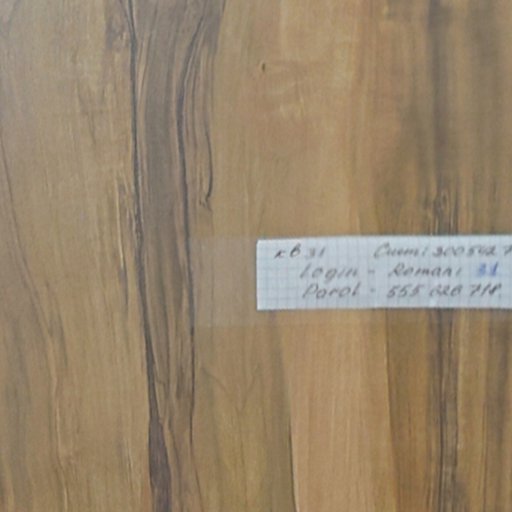 кв 31 Cuemi 3005427
Login - Romani 31
Parol - 555 626 718